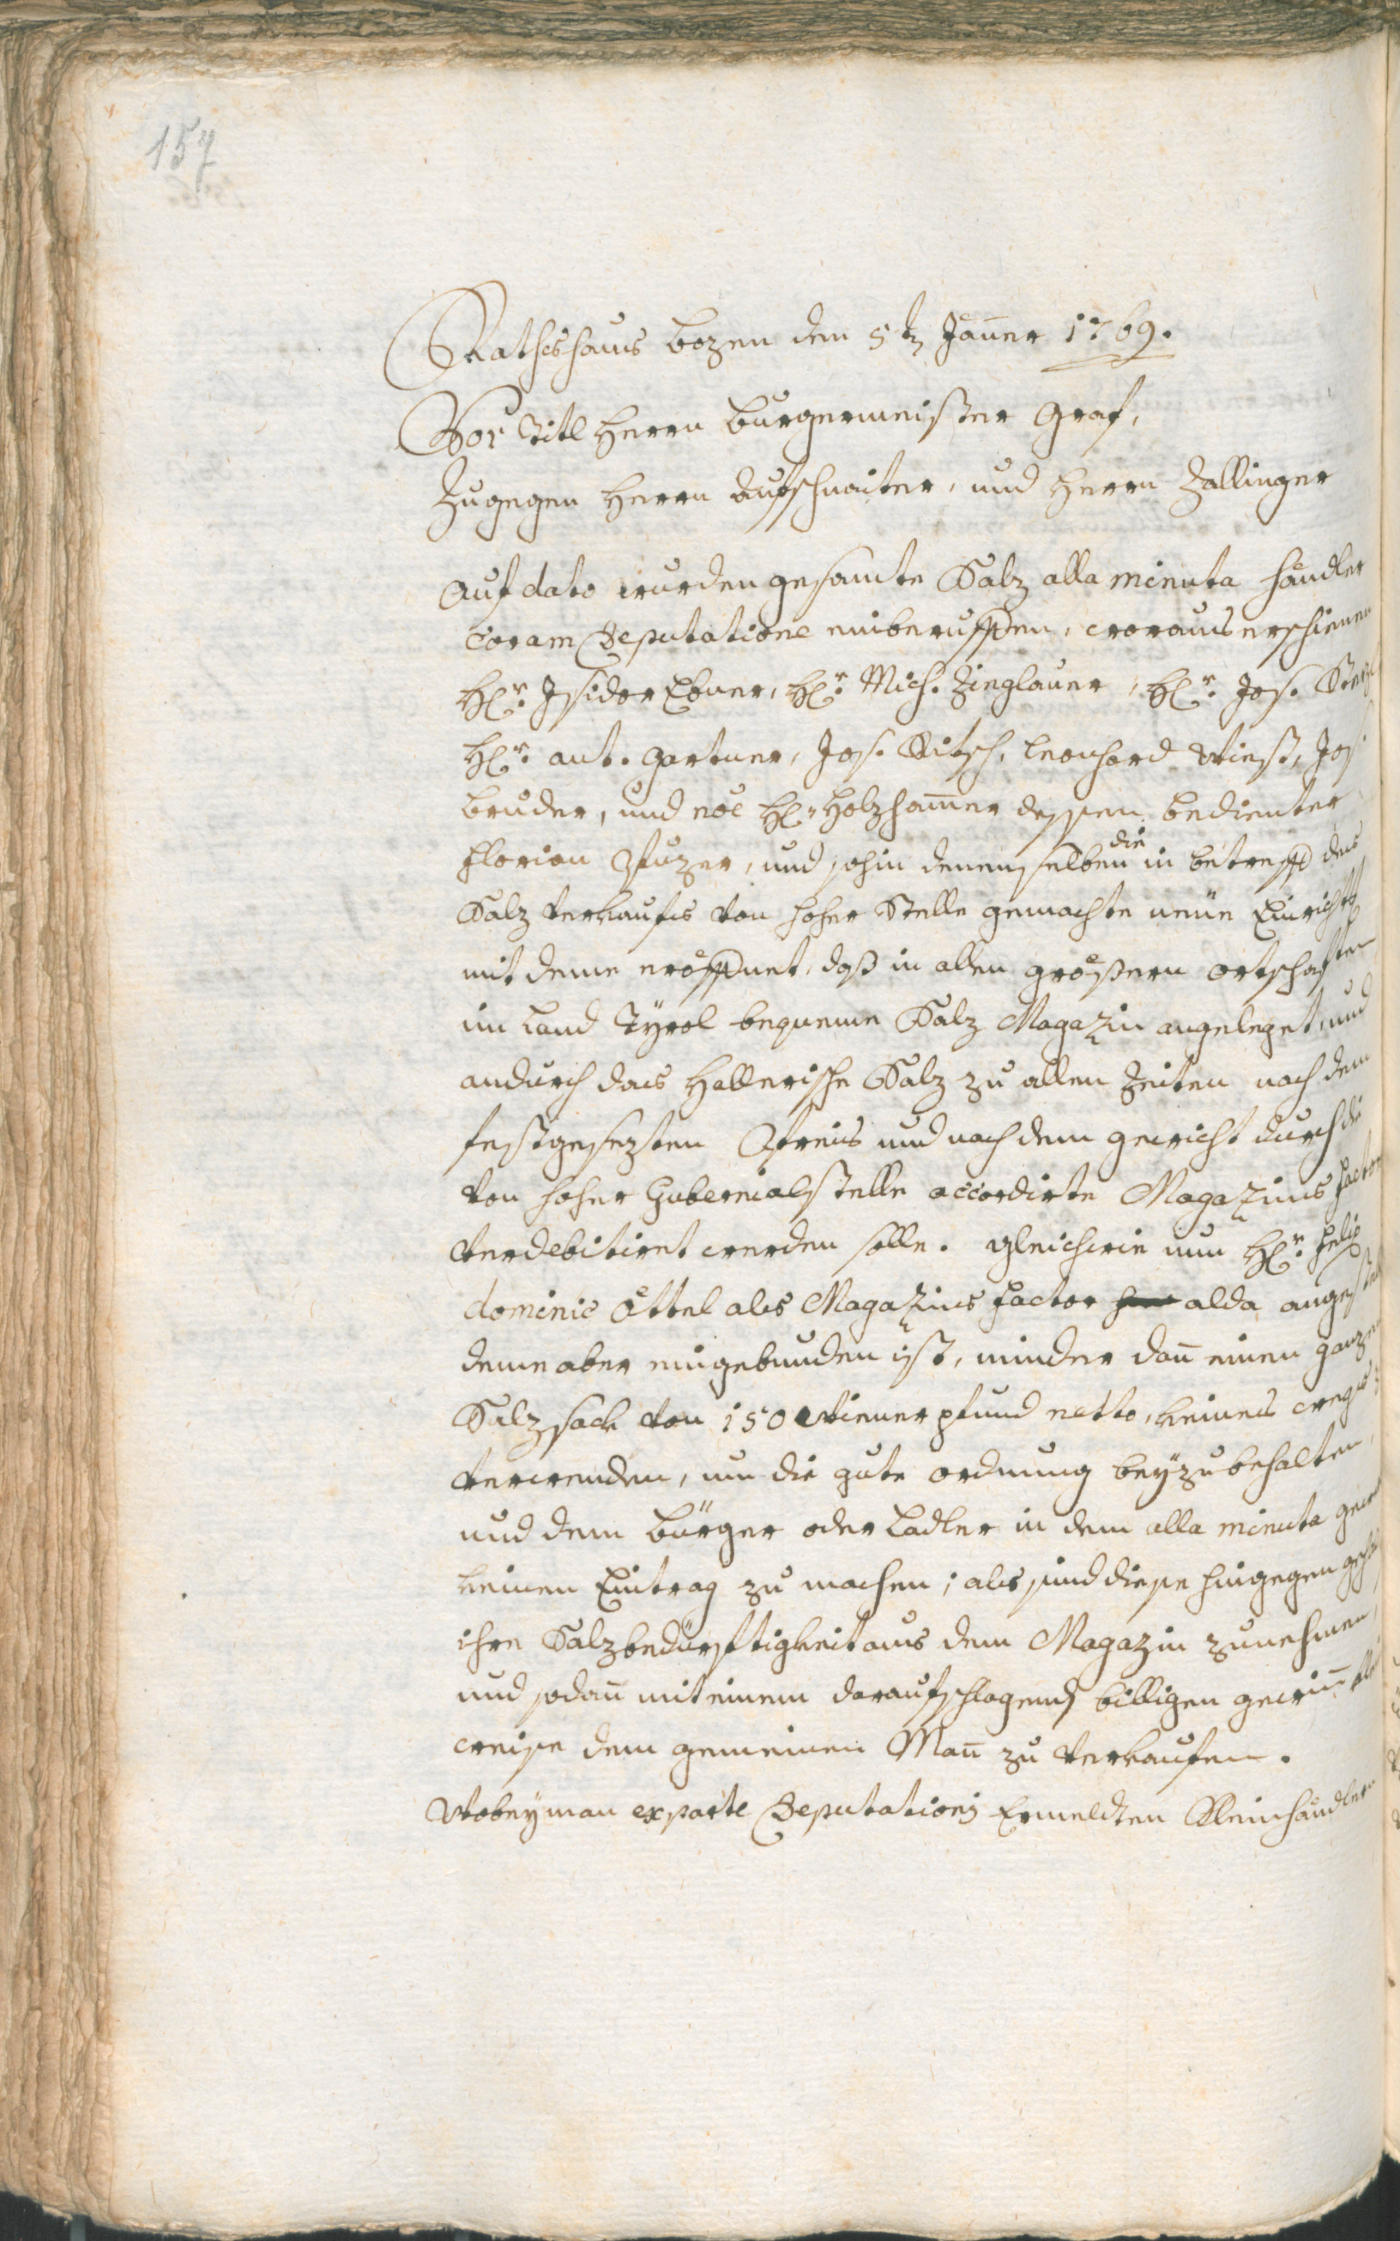 157
Rathshaus Bozen den 5tn Jänner 1769.
Vor Titl Herrn Burgermeister Graf,
Zugegen Herrn Aufschnaiter, und Herrn Zallinger
Auf dato wurden gesamte Salz alla minuta händler
coram Deputatione einberuffen, woraus erschienen
H[er]r. Isidor Ebner, H[er]r. Mich. Zieglauer, H[er]r. Jos.
H[er]r. Ant. Gartner, Jos. Kitsch, Leonhard Wieß, Jos.
Bruder, und noe H[err] Holzhammer dessen bedienter
Florian Pfuzer, und sohin denenselben die in betreff des
Salz verkaufs von hoher Stelle gemachte neüe Einricht
mit deme eröffnet, daß in allen größern ortschaften
im Land Tyrol bequeme Salz Magazin angeleget, und
andurch das Hallerische Salz zu allen Zeiten nach dem
festgesezten Preis und nach dem gewicht durch die
von hoher Gubernialstelle accordirte Magazins factor
verdebitiret werden solle. gleichwie nun H[er]r. Felix
Dominic Öttel als Magazins Factor alda angestelt
deme aber eingebunden ist, minder dan einen ganzen
Salzsack von 150 Wiener pfund netto, keines wegs
verwenden, um die gute ordnung beyzubehalten,
und dem bürger oder Ladler in dem alla minuta gew
keinen Eintrag zu machen; als sind diese hingegen gehal
ihre Salzbedürftigkeit aus dem Magazin zunehmen,
und sodan mit einem daraufschlagends billigen gewin
weise dem gemeinen Man zu verkaufen.
Wobey man ex parte Deputationis Ermeldten Kleinhändlern